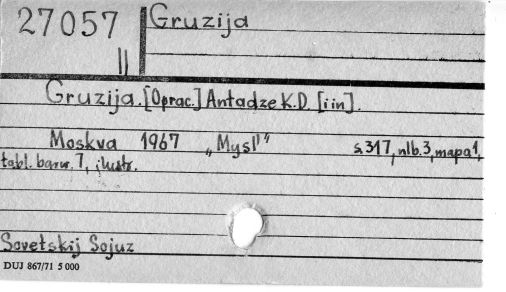 27057 Gruzija
II
Gruzija. [Oprac.] Antadze K.D. [i in].
Moskva 1967 „Mysl'" s.317, nlb.3, mapa 1,
tabl. barw. 7, ilustr.
Sovetskij Sojuz
DUJ 867/71 5 000